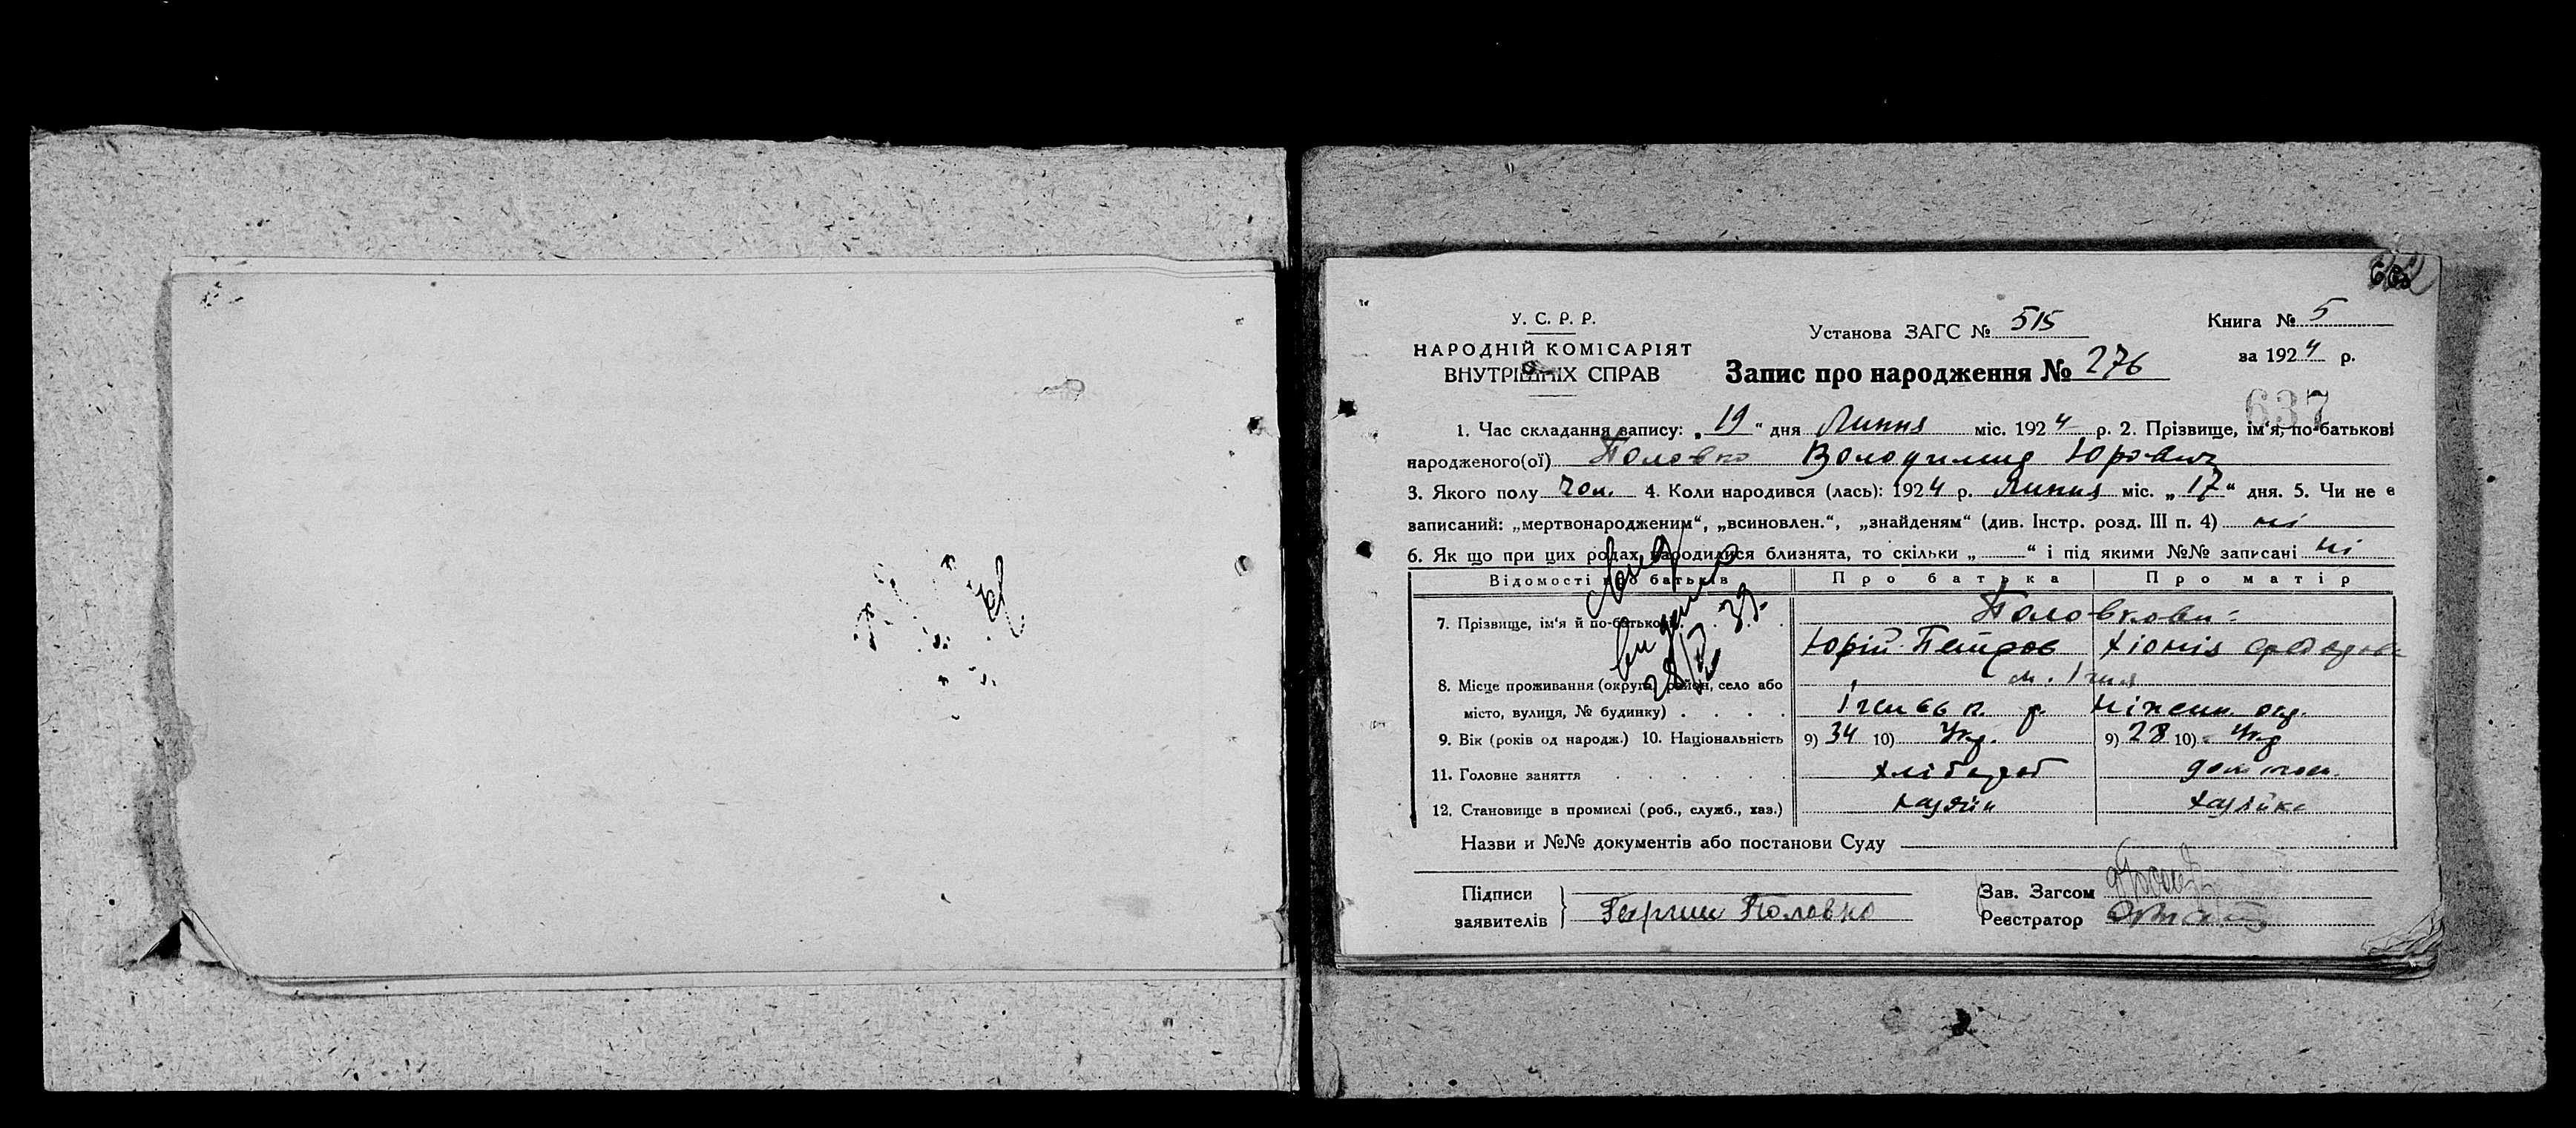 У. С. Р. Р.
НАРОДНІЙ КОМІСАРІЯТ
ВНУТРІШНІХ СПРАВ
Установа ЗАГС № 515
Запис про народження № 276
Книга № 5
за 1924 р.
637
1. Час складання запису: „19“ дня Липня міс. 1924 р. 2. Прізвище, ім'я, по-батькові
народженого(ої) Половко Володимир Юрович
3. Якого полу чол. 4. Коли народився (лась): 1924 р. Липня міс. „17“ дня. 5. Чи не є
записаний: „мертвонародженим“, „всиновлен.“, „знайденям“ (див. Інстр. розд. III п. 4) ні
6. Як що при цих родах народилися близнята, то скільки „ “ і під якими №№ записані ні
Відомості про батьків Про батька Про матір
Половкови:
7. Прізвище, ім'я й по-батькові Юрій Петров Хіонія
8. Місце проживання (округа, район, село або м. Ічня
місто, вулиця, № будинку) Ніжен. окр.
9. Вік (років од народж.) 10. Національність 9) 34 10) Укр. 9) 28 10) Укр
11. Головне заняття хлібороб дом. госп.
12. Становище в промислі (роб., служб., хаз.) хазяїн хазяйка
Назви и №№ документів або постанови Суду
Підписи
заявителів
Половко
Зав. Загсом
Реєстратор